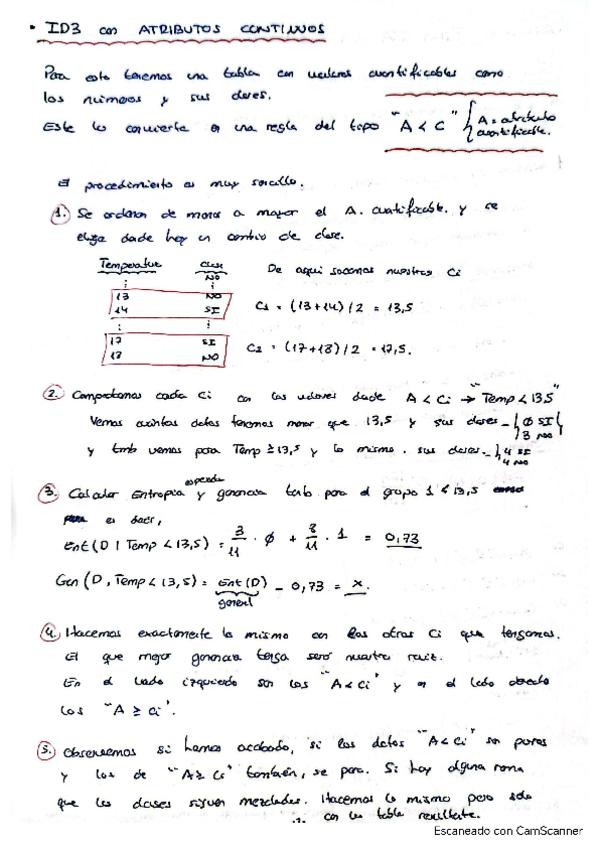 · ID3 con ATRIBUTOS CONTINUOS
Para esto tenemos una tabla con valores cuantificables como
los números y sus clases.
Este lo convierte en una regla del tipo "A < C" { A = atributo
cuantificable.
El procedimiento es muy sencillo.
1. Se ordenan de menor a mayor el A. cuantificable. y se
elige donde hay un cambio de clase.
Temperatur Clase De aqui sacamos nuestros Ci
NO
⋮ ⋮
13 NO
14 SI C1 = (13+14)/2 = 13,5
⋮ ⋮
17 SI
18 NO C2 = (17+18)/2 = 17,5.
2. Comprobamos cada Ci con los valores donde A < Ci → "Temp < 13,5"
Vemos cuántos datos tenemos menor que 13,5 y sus clases - { Ø SI
3 NO }
y tmb vemos para Temp ≥ 13,5 y lo mismo. sus clases - { 4 SI
4 NO
3. Calcular Entropia esperada y ganancia tanto para el grupo 1 < 13,5
es decir,
Ent (D | Temp < 13,5) = 3/11 · Ø + 8/11 · 1 = 0,73
Gan (D, Temp < 13,5) = Ent (D) - 0,73 = x.
general
4. Hacemos exactamente lo mismo con los otros Ci que tengamos.
El que mejor ganancia tenga será nuestra raiz.
En el lado izquierdo son los "A < Ci" y en el lado derecho
los "A ≥ Ci".
5. Observemos si hemos acabado, si los datos "A < Ci" son puros
y los de "A ≥ Ci" también, se para. Si hay alguna rama
que las clases siguen mezcladas. Hacemos lo mismo pero solo
con la tabla resultante.
Escaneado con CamScanner